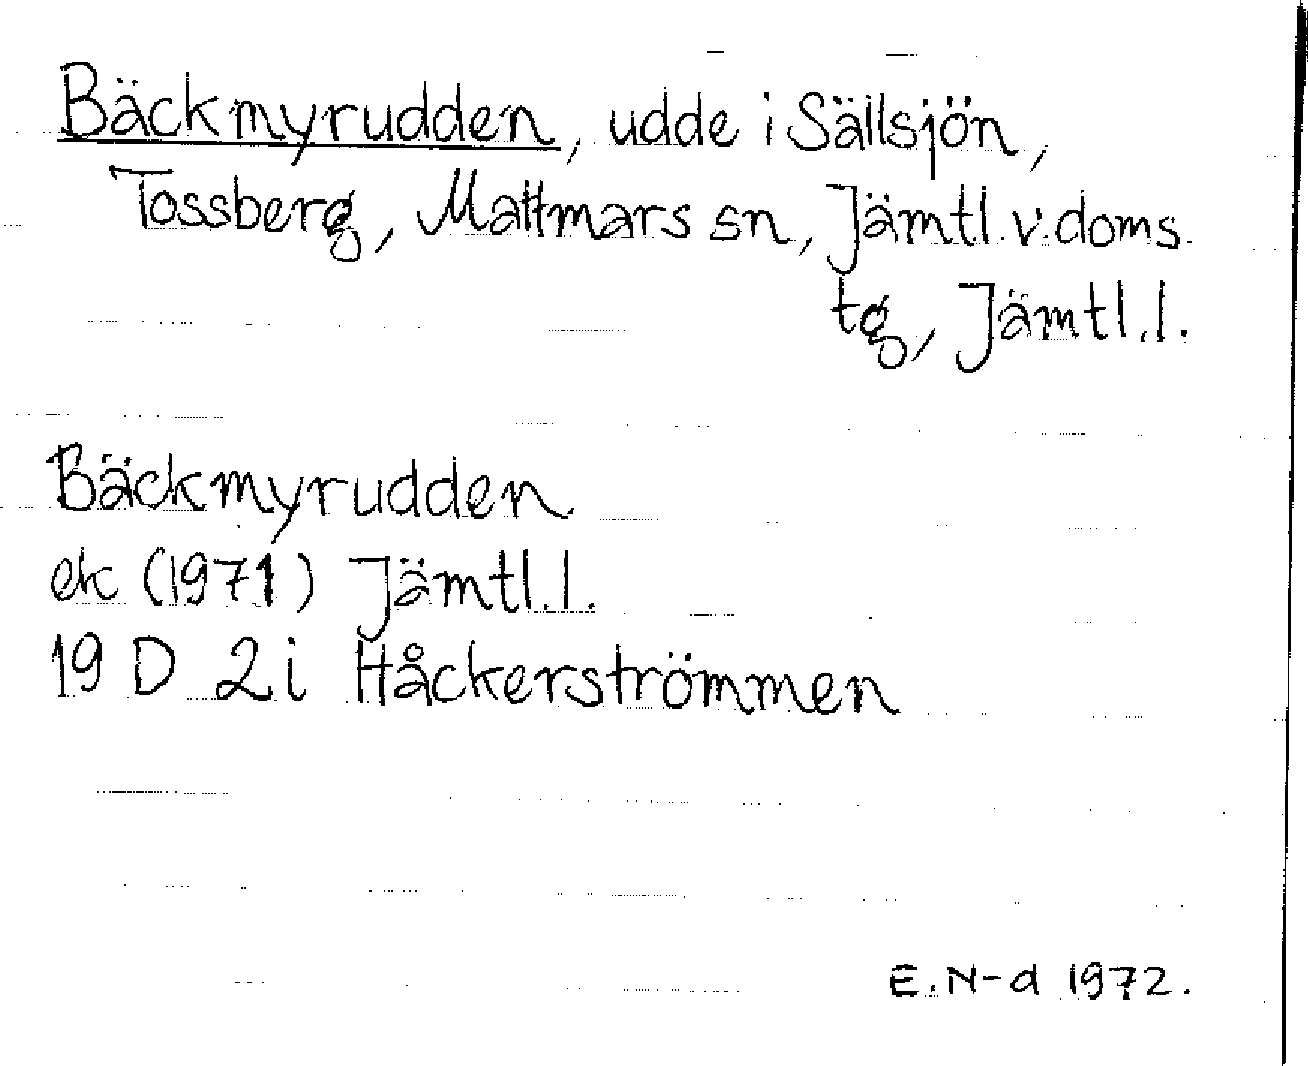 Bäckmyrudden, udde i Sällsjön,
Tossberg, Mattmars sn, Jämtl. v. doms.
tg, Jämtl. l.
Bäckmyrudden
ek (1971) Jämtl. l.
19 D 2i Håckerströmmen
E. N-d 1972.